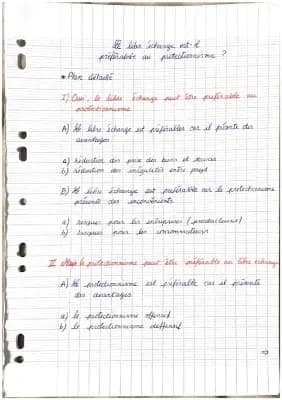 Le libre échange est-il
préférable au protectionnisme ?
• Plan détaillé
I) Oui, le libre échange peut être préférable au
protectionnisme
A) Le libre échange est préférable car il présente des
avantages
a) réduction des prix des biens et services
b) réduction des inégalités entre pays
B) Le libre échange est préférable car le protectionnisme
présente des inconvénients
a) risques pour les entreprises (producteurs)
b) risques pour les consommateurs
II Mais le protectionnisme peut être préférable au libre échange
A) Le protectionnisme est préférable car il présente
des avantages
a) le protectionnisme offensif
b) le protectionnisme deffensif